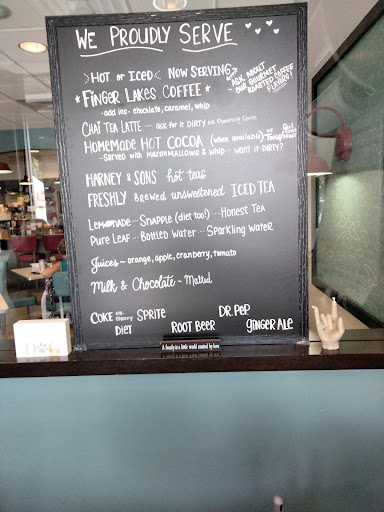 WE PROUDLY SERVE
HOT or ICED NOW SERVING
ASK ABOUT OUR GOURMET ROASTED COFFEE FLAVORS!
* FINGER LAKES COFFEE *
-add ins- chocolate, caramel, whip
CHAI TEA LATTE --- ask for it DIRTY
HOMEMADE HOT COCOA (when available)
-Served with MARSHMALLOWS & WHIP -- WANT IT DIRTY?
HARNEY & SONS hot teas
FRESHLY Brewed unsweetened ICED TEA
LemoNADE -- SNAPPLE (diet too!) -- Honest Tea
Pure LEAF -- BOTTLED WATER -- SPARKLING WATER
Juices ~ orange, apple, cranberry, tomato
Milk & Chocolate ~ Malted
COKE Cherry SPRITE DR. PEP.
DIET ROOT BEER GINGER ALE
A family is a little world created by love.